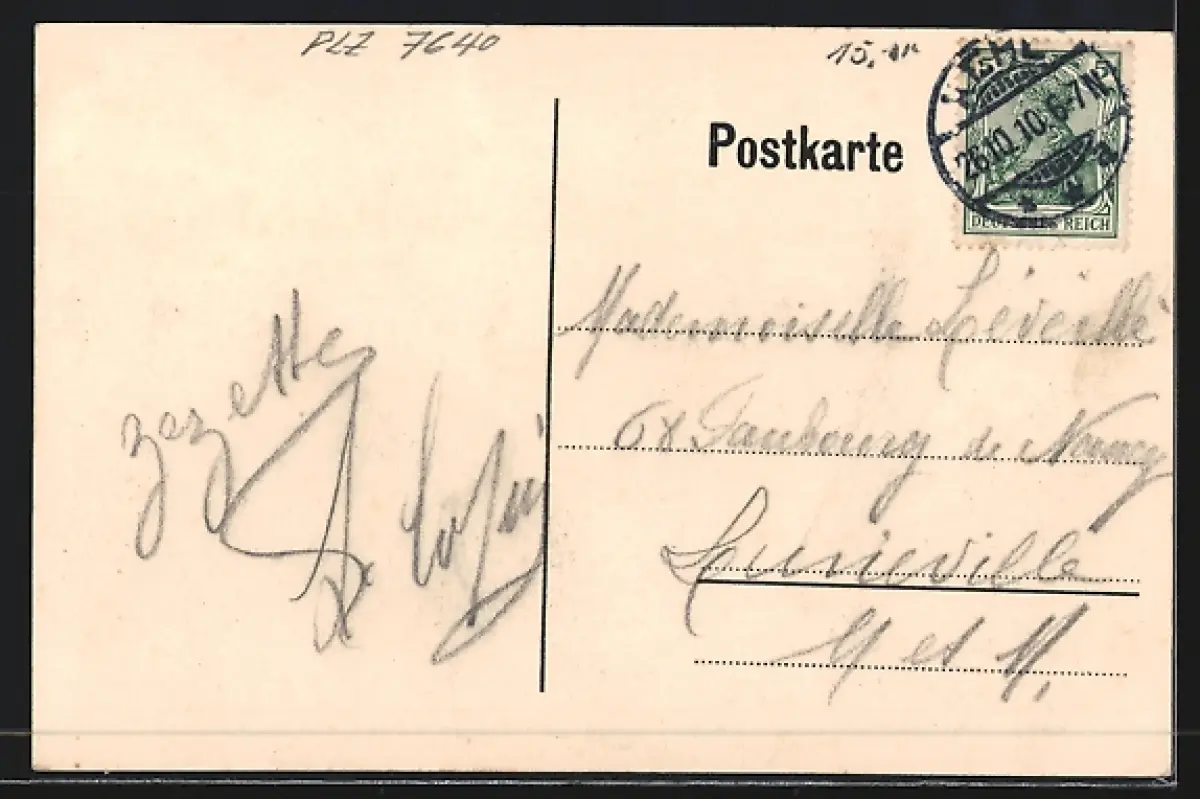 PLZ 7640
15,-
Postkarte
KEHL
26.10.10.6-7N.
* 1 a
DEUTSCHES REICH
Mademoiselle Léveillé
68 Faubourg de Nancy
Luneville
M et M.
zezette